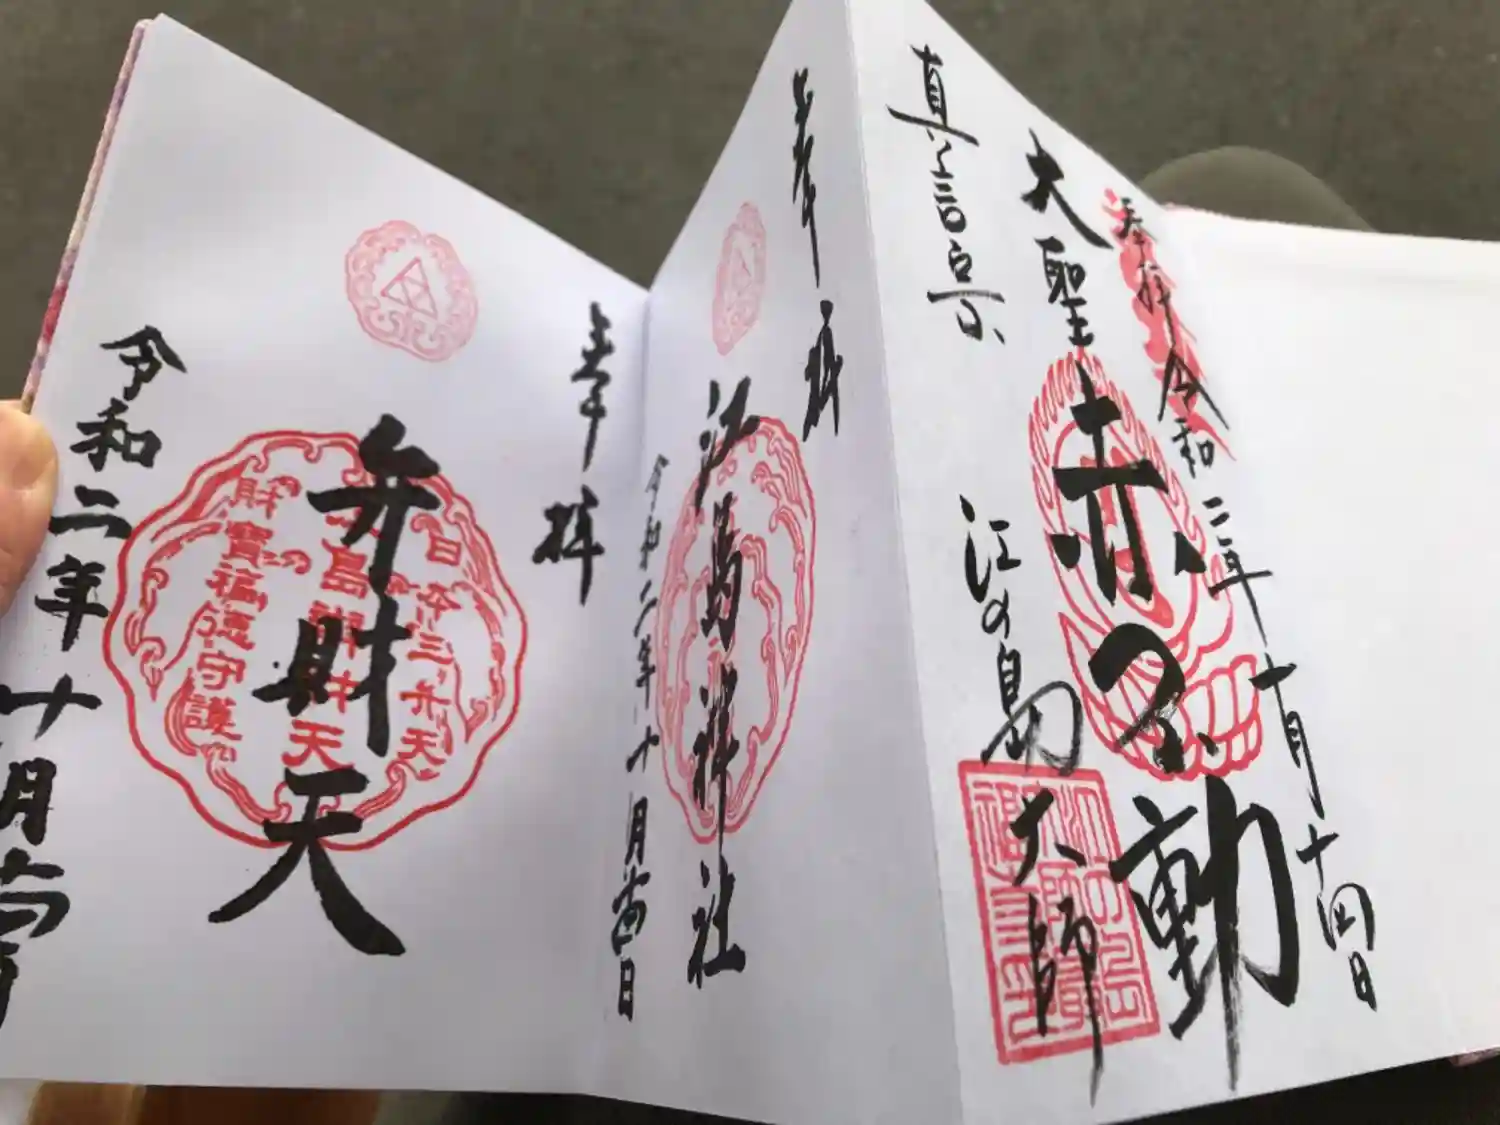 奉拝 令和二年十月十四日
大聖
赤不動
真言宗
江の島大師
奉拝
江島神社
令和二年十月十四日
奉拝
弁財天
日本三弁天
江島辨財天
財寶福徳守護
令和二年十月十四日